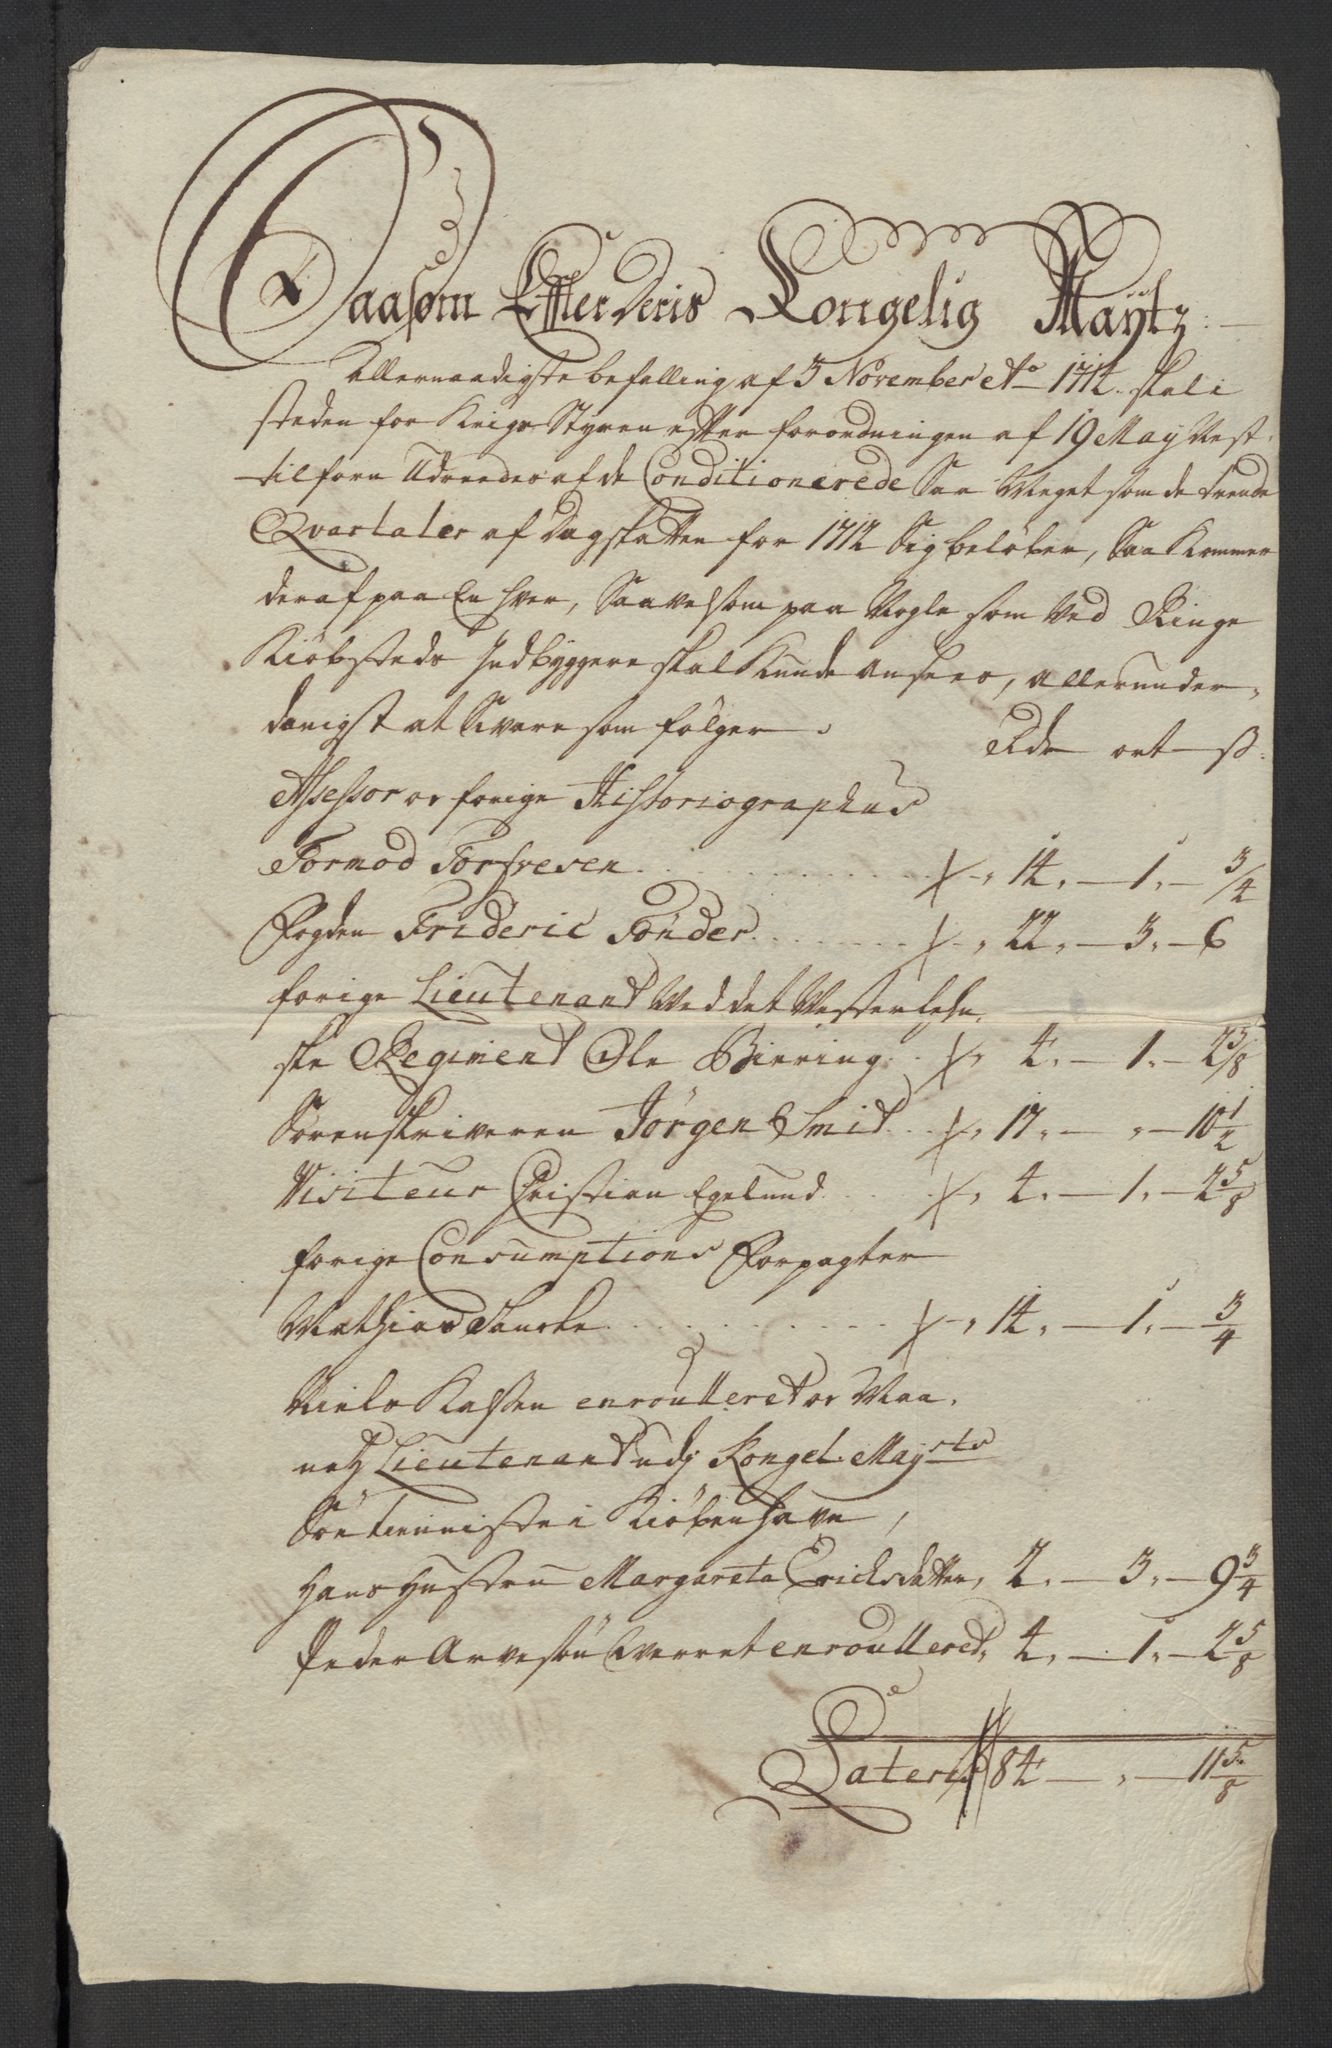 Saasom Effter Deris Kongelig Maÿtz:
Allernaadigste befalling af 3 November Ao 1712. skal i
steden for Krigs Styren efter forordningen af 19 May Nest
tilforn Udreedes af de Conditionerede Saa Meget som de trende
Qvartaler af Dagskatten for 1712 Sig beløber, Saa Kommer
deraf paa En hver, Saavelsom paa Nogle som Ved Ringe
Kiøbsteds Indbyggere skal Kunde ansees, allerunder-
danigst at Svare som følger.
Rdr ort ß.
Assessor og forige Historiographus
Tormod Torfvesen . . . 14. — 1. — 3/4
Fogden Frideric Tønder . . . 22. — 3. — 6
forige Lieutenant Ved det Vesterlehn-
ske Regiment Ole Bierring . . 4. — 1. — 2 5/8
Sorenskriveren Jörgen Smid . . 17. — „ — 10 1/2
Visiteur Christian Egelund . . . 4. — 1. — 2 5/8
forige Consumptions Forpagter
Mathias Taucke . . . 14. — 1. — 3/4
Niels Kassen enroulleret og Maa-
netz Lieutenant udj Kongel. Maysts
Søe tienniste i Kiøbenhavn,
Hans Hustru Margareta Erichsdatter, 2. — 3. — 9 3/4
Peder Arvesøn Qverret enroulleret, 4. — 1. — 2 5/8
Lateris 84 — „ — 11 5/8